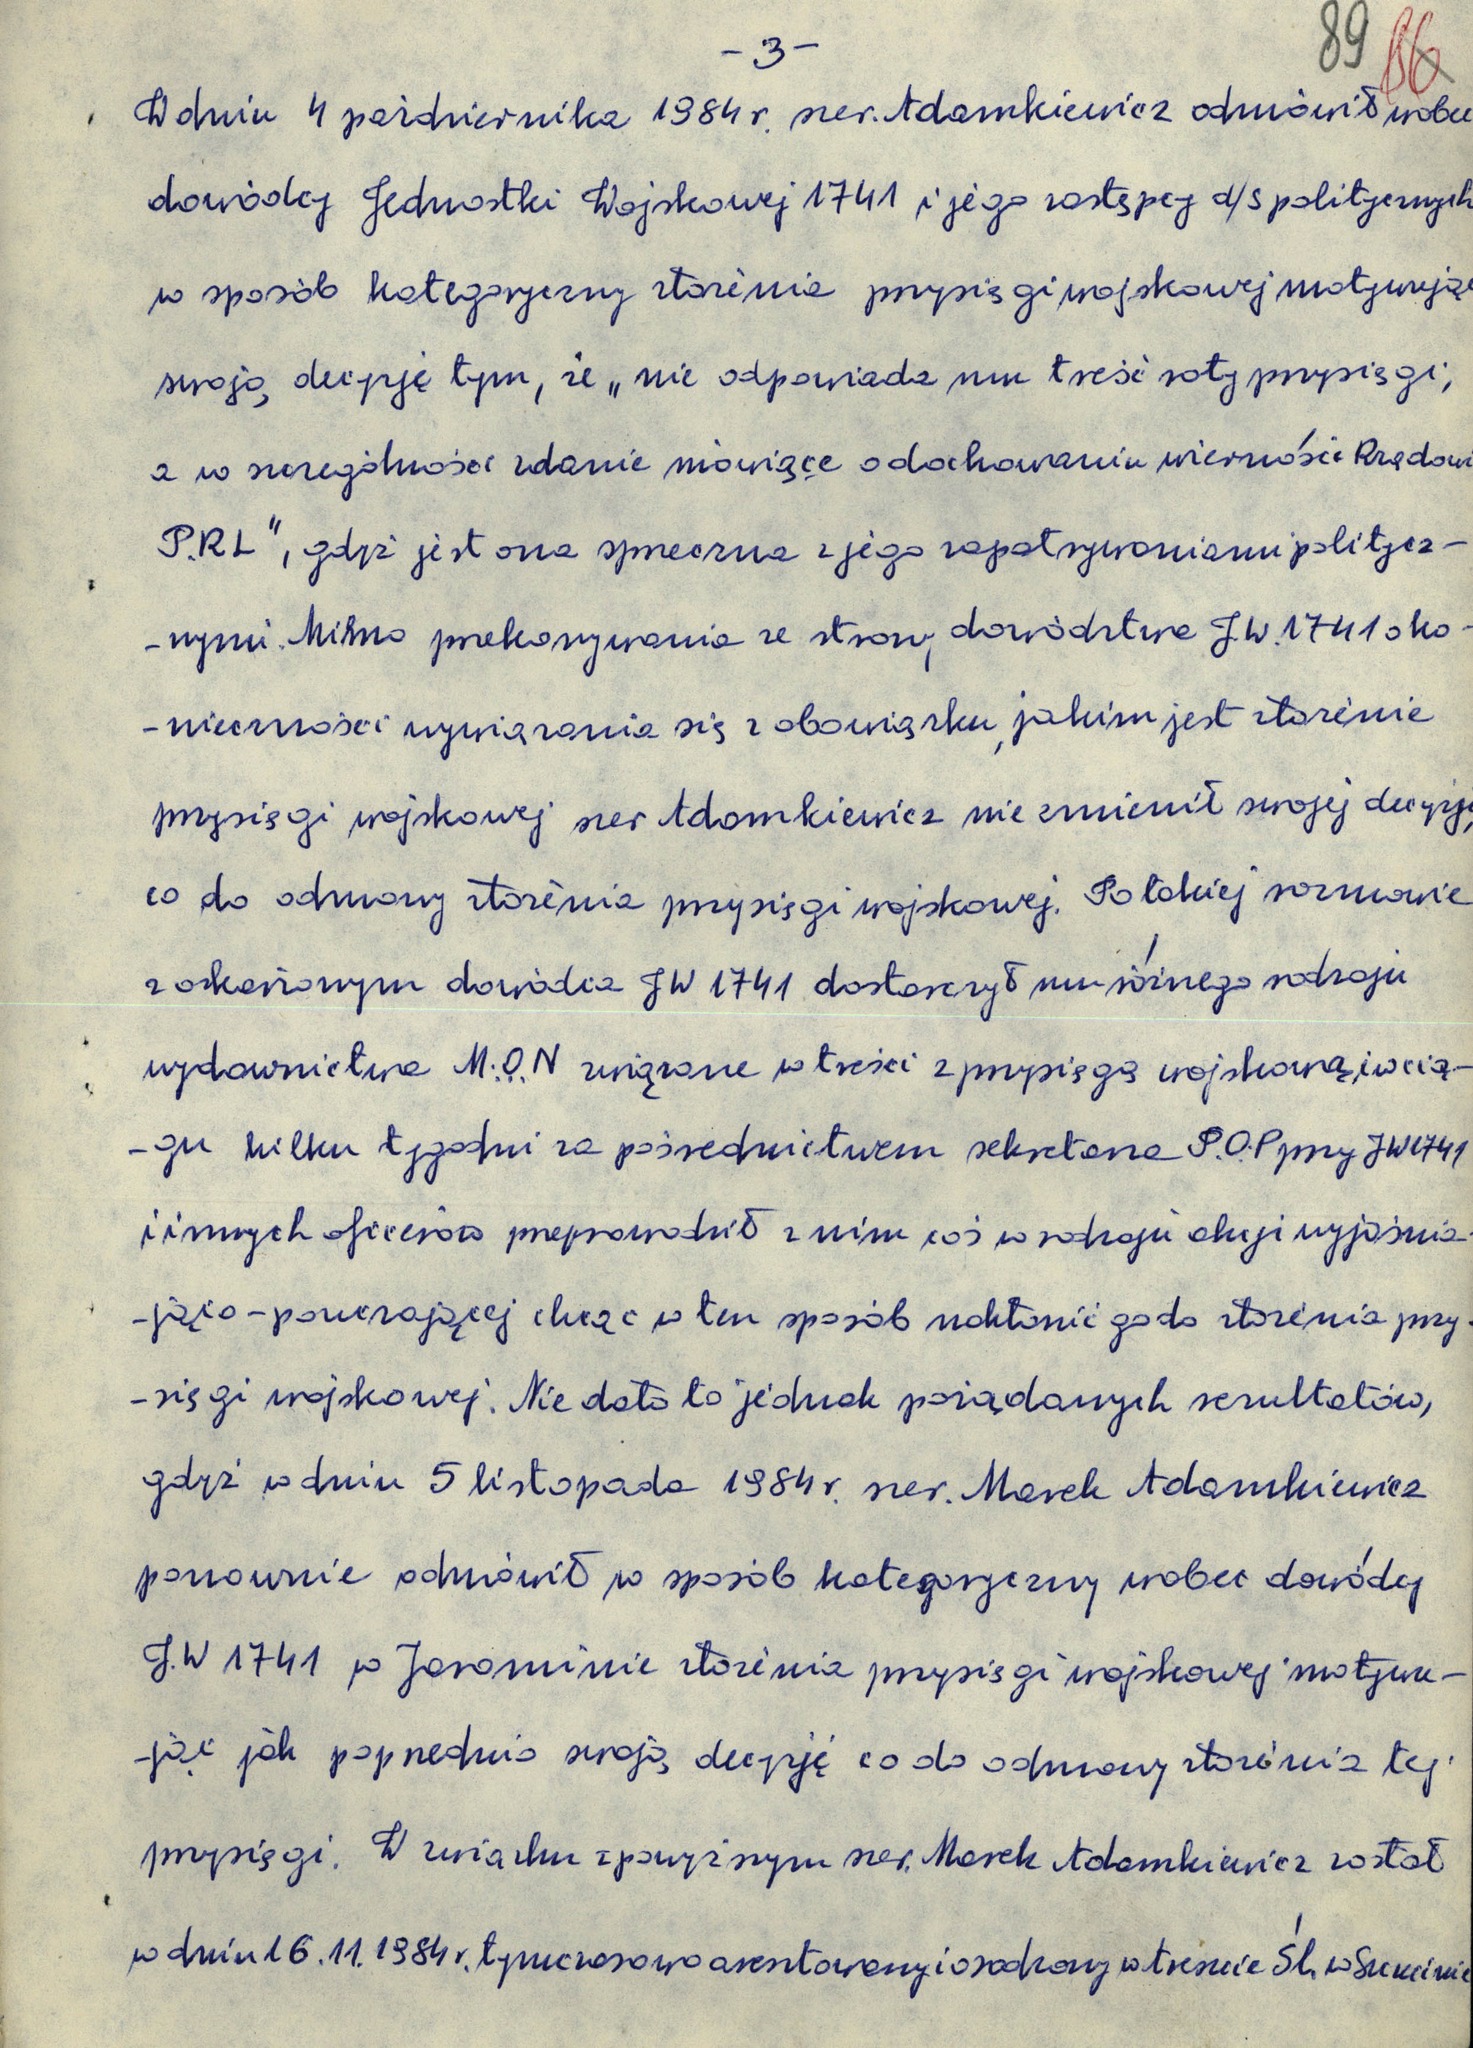 - 3 -
89 86
W dniu 4 października 1984 r. szer. Adamkiewicz odmówił wobec
dowódcy Jednostki Wojskowej 1741 i jego zastępcy d/s politycznych
w sposób kategoryczny złożenia przysięgi wojskowej motywując
swoją decyzję tym, że „nie odpowiada mu treść roty przysięgi,
a w szczególności zdanie mówiące o dochowaniu wierności Rządowi
P.R.L", gdyż jest ona sprzeczna z jego zapatrywaniami politycz-
-nymi. Mimo przekonywania ze strony dowództwa J.W. 1741 o ko-
-nieczności wywiązania się z obowiązku, jakim jest złożenie
przysięgi wojskowej szer Adamkiewicz nie zmienił swojej decyzji,
co do odmowy złożenia przysięgi wojskowej. Po takiej rozmowie
z oskarżonym dowódca JW 1741 dostarczył mu różnego rodzaju
wydawnictwa M.O.N związane w treści z przysięgą wojskową i w cią-
-gu kilku tygodni za pośrednictwem sekretarza P.O.P przy JW 1741
i innych oficerów przeprowadził z nim coś w rodzaju akcji wyjaśnia-
-jąco-pouczającej chcąc w ten sposób nakłonić go do złożenia przy-
-sięgi wojskowej. Nie dało to jednak pożądanych rezultatów,
gdyż w dniu 5 listopada 1984 r. szer. Marek Adamkiewicz
ponownie odmówił w sposób kategoryczny wobec dowódcy
J.W 1741 w Jarominie złożenia przysięgi wojskowej motywu-
-jąc jak poprzednio swoją decyzję co do odmowy złożenia tej
przysięgi. W związku z powyższym szer. Marek Adamkiewicz został
w dniu 16.11.1984 r. tymczasowo aresztowany i osadzony w areszcie Śl. w Szczecinie